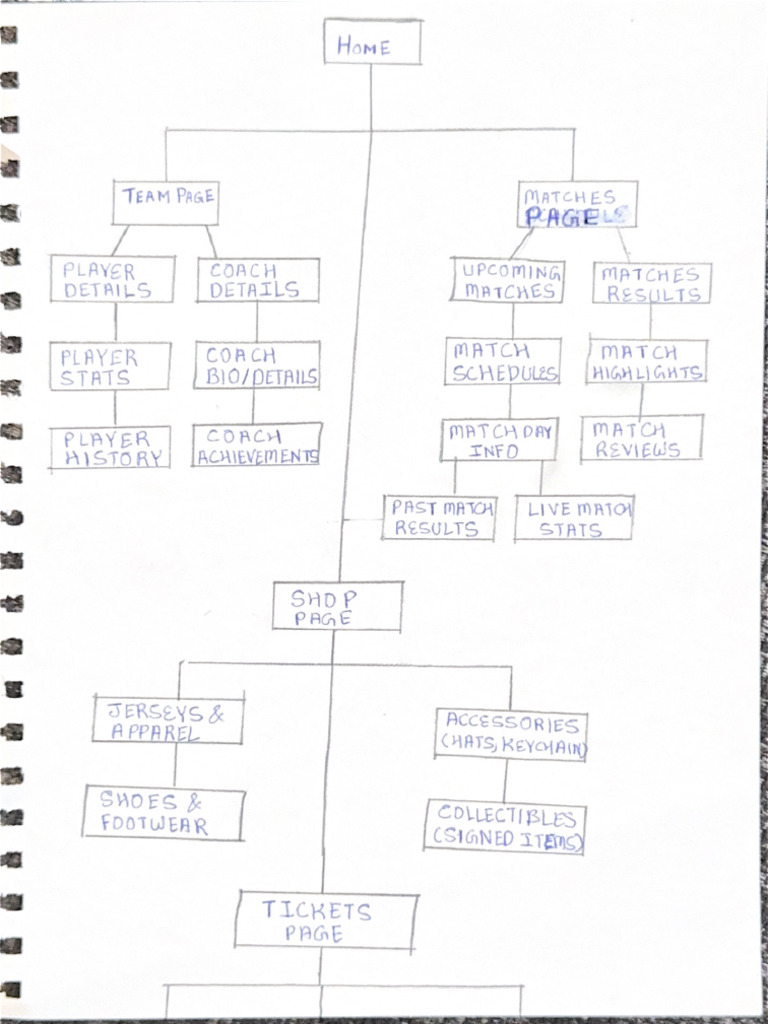 HOME
TEAM PAGE
MATCHES
PAGE
PLAYER
DETAILS
COACH
DETAILS
UPCOMING
MATCHES
MATCHES
RESULTS
PLAYER
STATS
COACH
BIO/DETAILS
MATCH
SCHEDULES
MATCH
HIGHLIGHTS
PLAYER
HISTORY
COACH
ACHIEVEMENTS
MATCH DAY
INFO
MATCH
REVIEWS
PAST MATCH
RESULTS
LIVE MATCH
STATS
SHOP
PAGE
JERSEYS &
APPAREL
ACCESSORIES
(HATS, KEYCHAIN)
SHOES &
FOOTWEAR
COLLECTIBLES
(SIGNED ITEMS)
TICKETS
PAGE